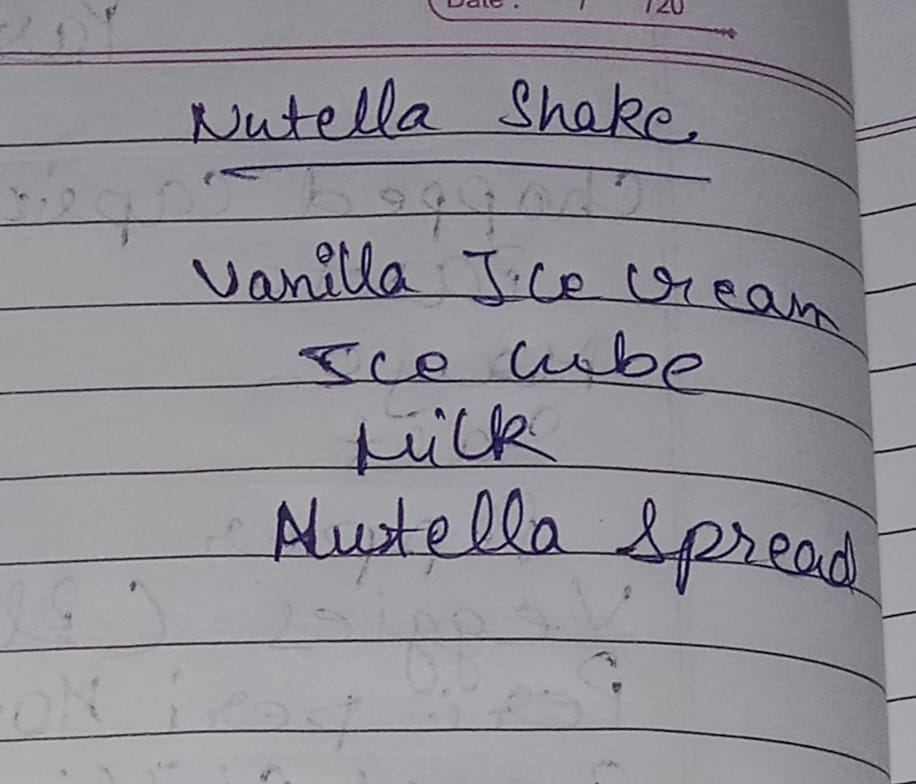 Date : / /20
Nutella Shake
Vanilla Ice cream
Ice cube
Milk
Nutella Spread